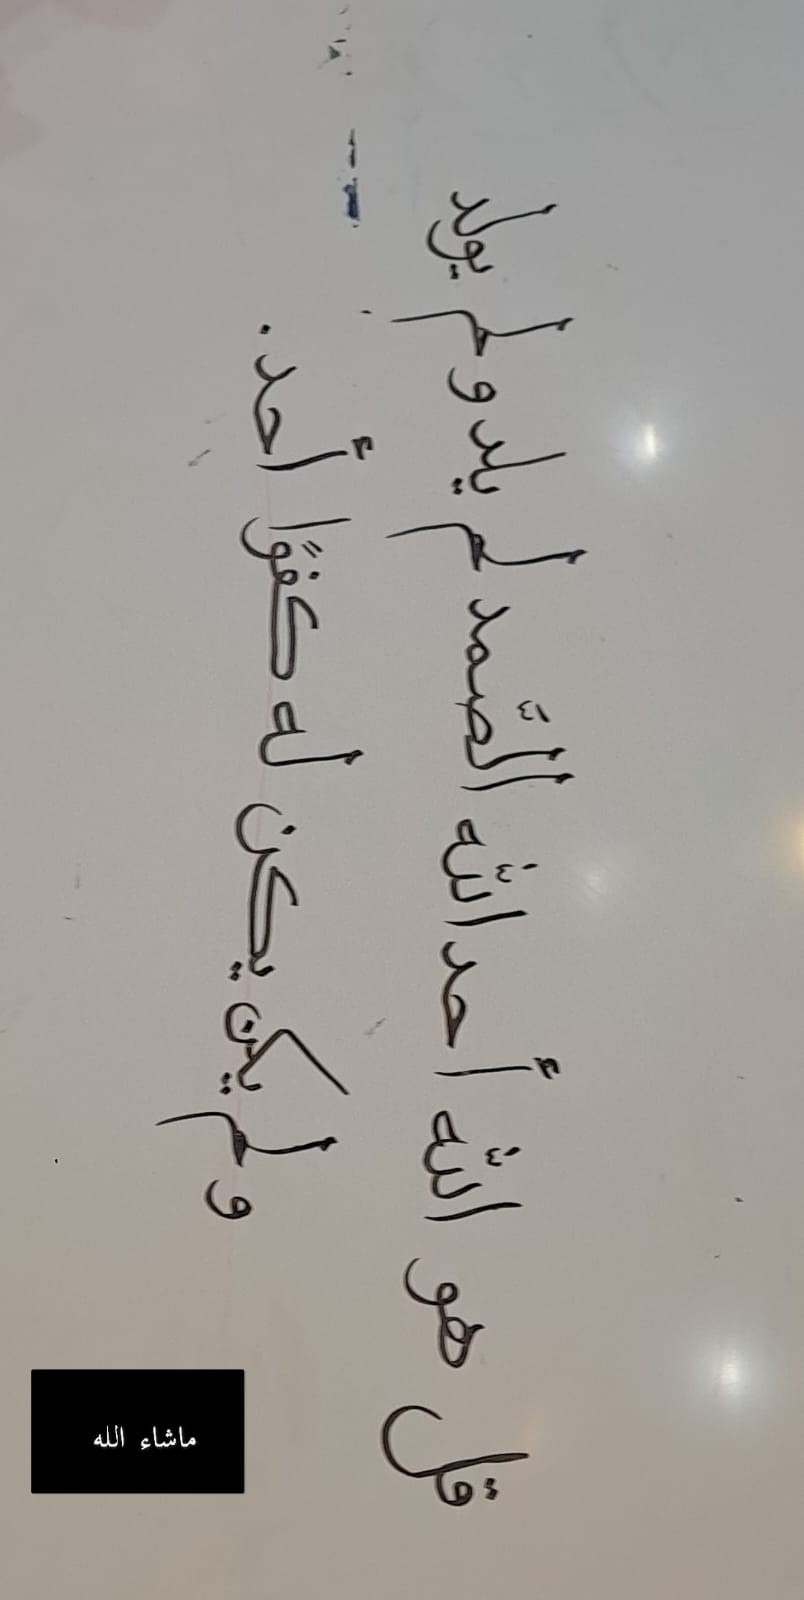 قل هو اللّه أحد اللّه الصّمد لم يلد ولم يولد
ولم يكن يكن له كفوًا أحد.
ماشاء الله